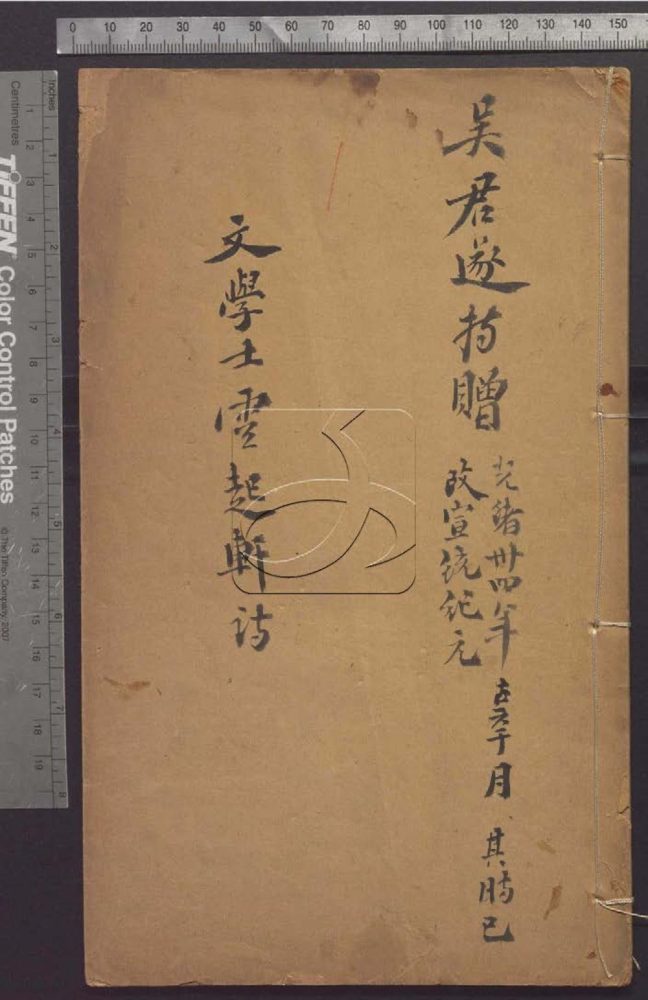 0 10 20 30 40 50 60 70 80 90 100 110 120 130 140 150
吳君遂持贈
光緒卅四年
十月其時已
改宣統紀元
文學士雲起軒詩
inches
1 2 3 4 5 6 7 8
Centimetres
1 2 3 4 5 6 7 8 9 10 11 12 13 14 15 16 17 18 19
TIFFEN Color Control Patches
© The Tiffen Company, 2007